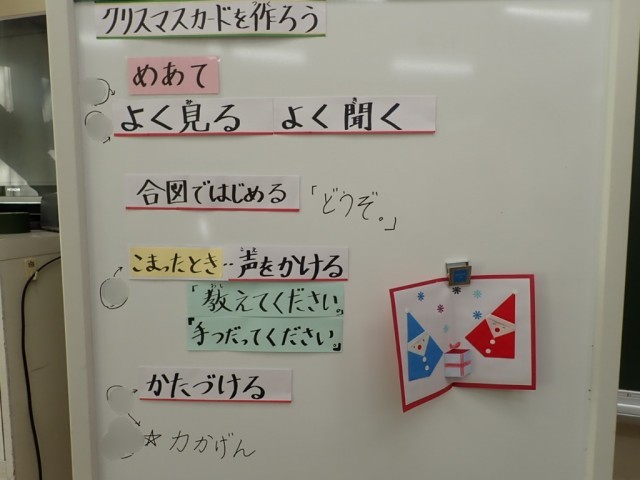 クリスマスカードを作ろう
めあて
よく見る よく聞く
合図ではじめる「どうぞ。」
こまったとき‥声をかける
「教えてください。」
「手つだってください」
かたづける
☆力かげん